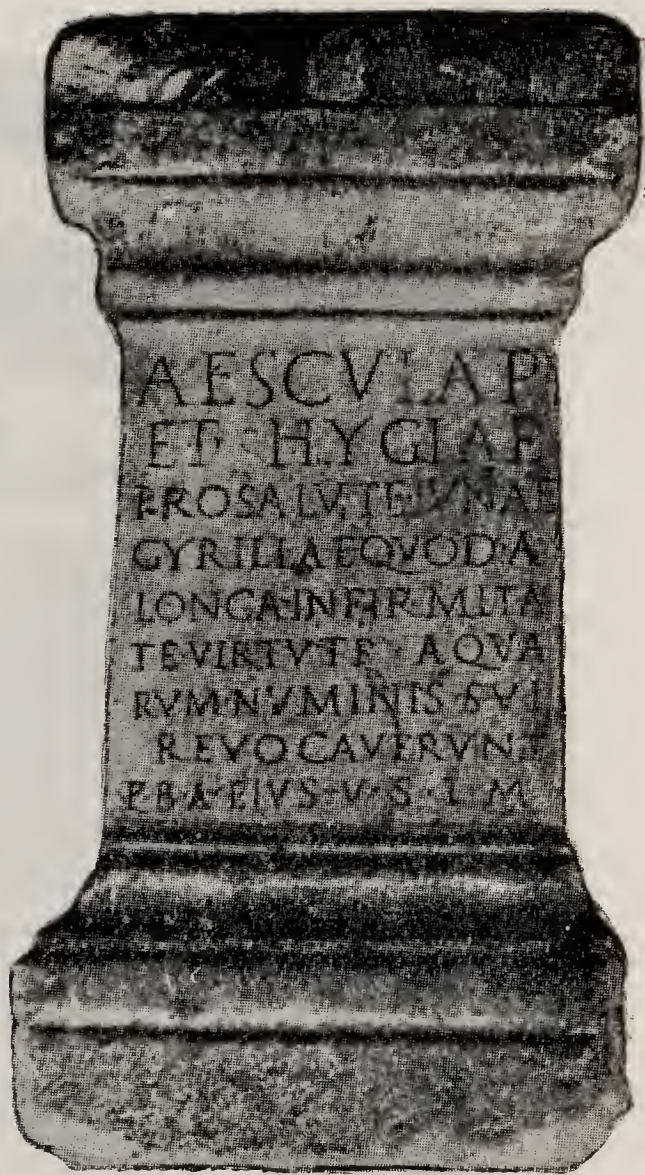 AESCVLAP
ET · HYGIAE
PRO SALVTE IVNIAE
CYRILLAE QVOD · A
LONGA · INFIRMITA
TE · VIRTVTE · AQVA
RVM · NVMINIS · SVI
REVOCAVERVN
B · A · EIVS · V · S · L · M